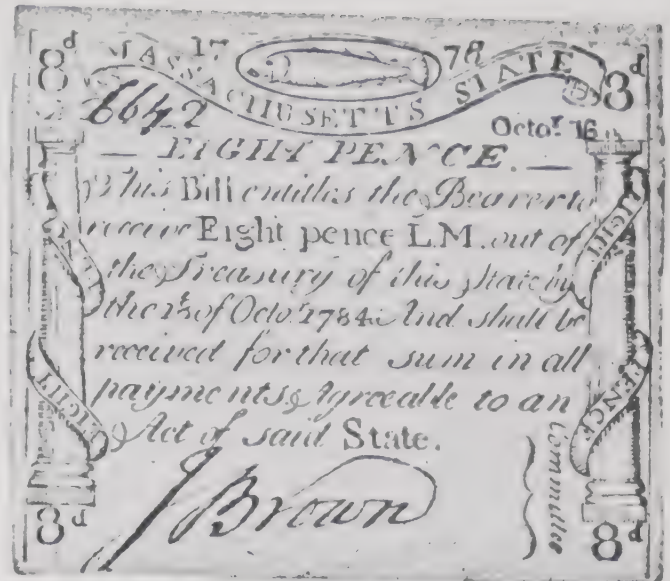 8d 17 78 8d
MASSACHUSETTS STATE
6642
Octo.r 16
EIGHT PENCE.
This Bill entitles the Bearer to
receive Eight pence L.M. out of
the Treasury of this State by
the 1st of Octo.r 1784. And shall be
received for that sum in all
payments Agreeable to an
Act of said State.
EIGHT
PENCE
EIGHT
J Brown
Committee
8d 8d